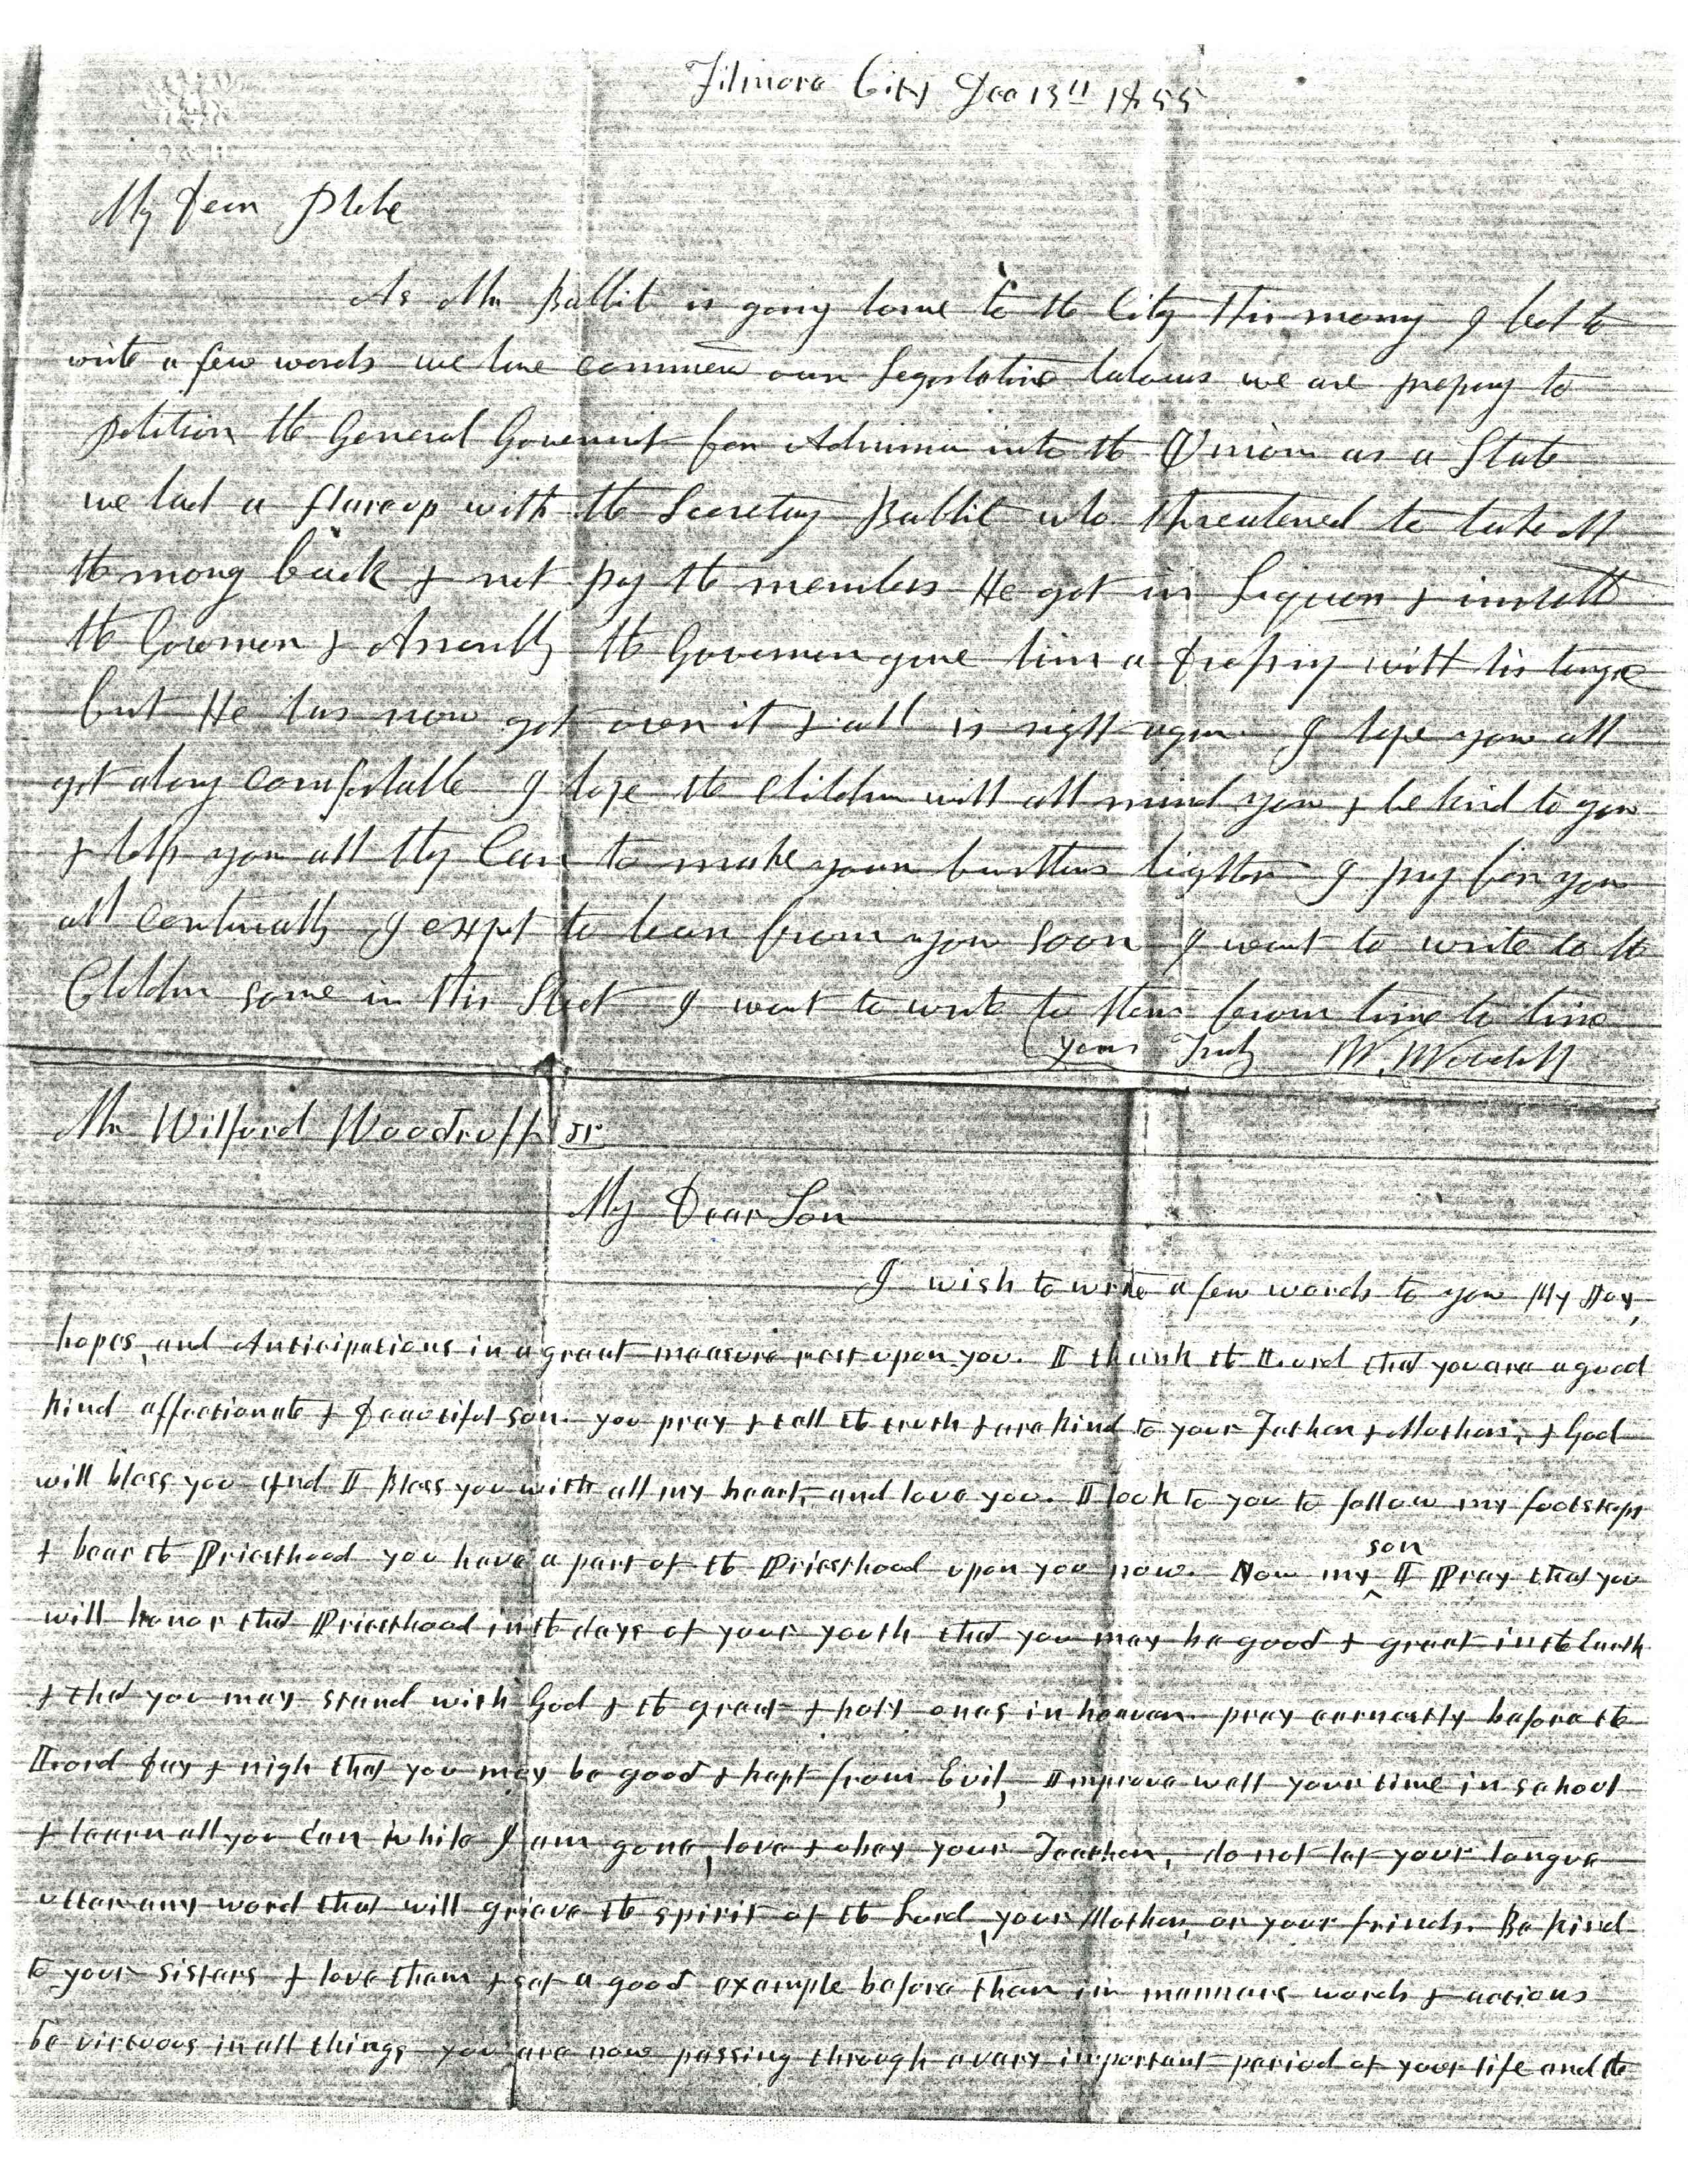 Filmore City Dec 13th 1855
My Dear Phebe
As Mr Babbit is going home to the City this morning I desired to
write a few words we have commenced our Legislative labours we are prepaing to
petition the General Government for Admission into the Union as a State
we had a flareup with the Secretary Babbit who threatened to take all
the money back & not pay the members He got in Liquor & insult
the Governor & Assembly the Governor gave him a dressing with his tongue
but He has now got over it & all is right again I hope you all
get along comfortable I hope the Children will all mind you & be kind to you
& help you all they Can to make your burthens lighter I pray for you
all continually I expet to hear from you soon I want to write to the
Children some in this Sheet I want to write to them from time to time
yours Truly W. Woodruff
Mr Wilford Woodruff Jr.
My Dear Son
I wish to write a few words to you My Joy,
hopes, and Anticipations in a great measure rest upon you. I thank the Lord that you are a good
kind affectionate & Beautiful son. you pray & tell the truth & are kind to your Father & Mother, & God
will bless you And I Bless you with all my heart, and love you. I look to you to follow my footsteps
& bear the Priesthood you have a part of the Priesthood upon you now. Now my son I Pray that you
will honor that Priesthood in the days of your youth that you may be good & great in the Earth
& that you may stand with God & the great & holy ones in heaven. pray earnestly before the
Lord day & nigh that you may be good & kept from Evil, Improve well your time in school
& learn all you can while I am gone, love & obey your Teacher, do not let your tongue
utter any word that will grieve the spirit of the Lord, your Mother, or your friends. Be kind
to your sisters & love them & set a good example before them in manners words & actions
be virtuous in all things you are now passing through a very important period of your life and the